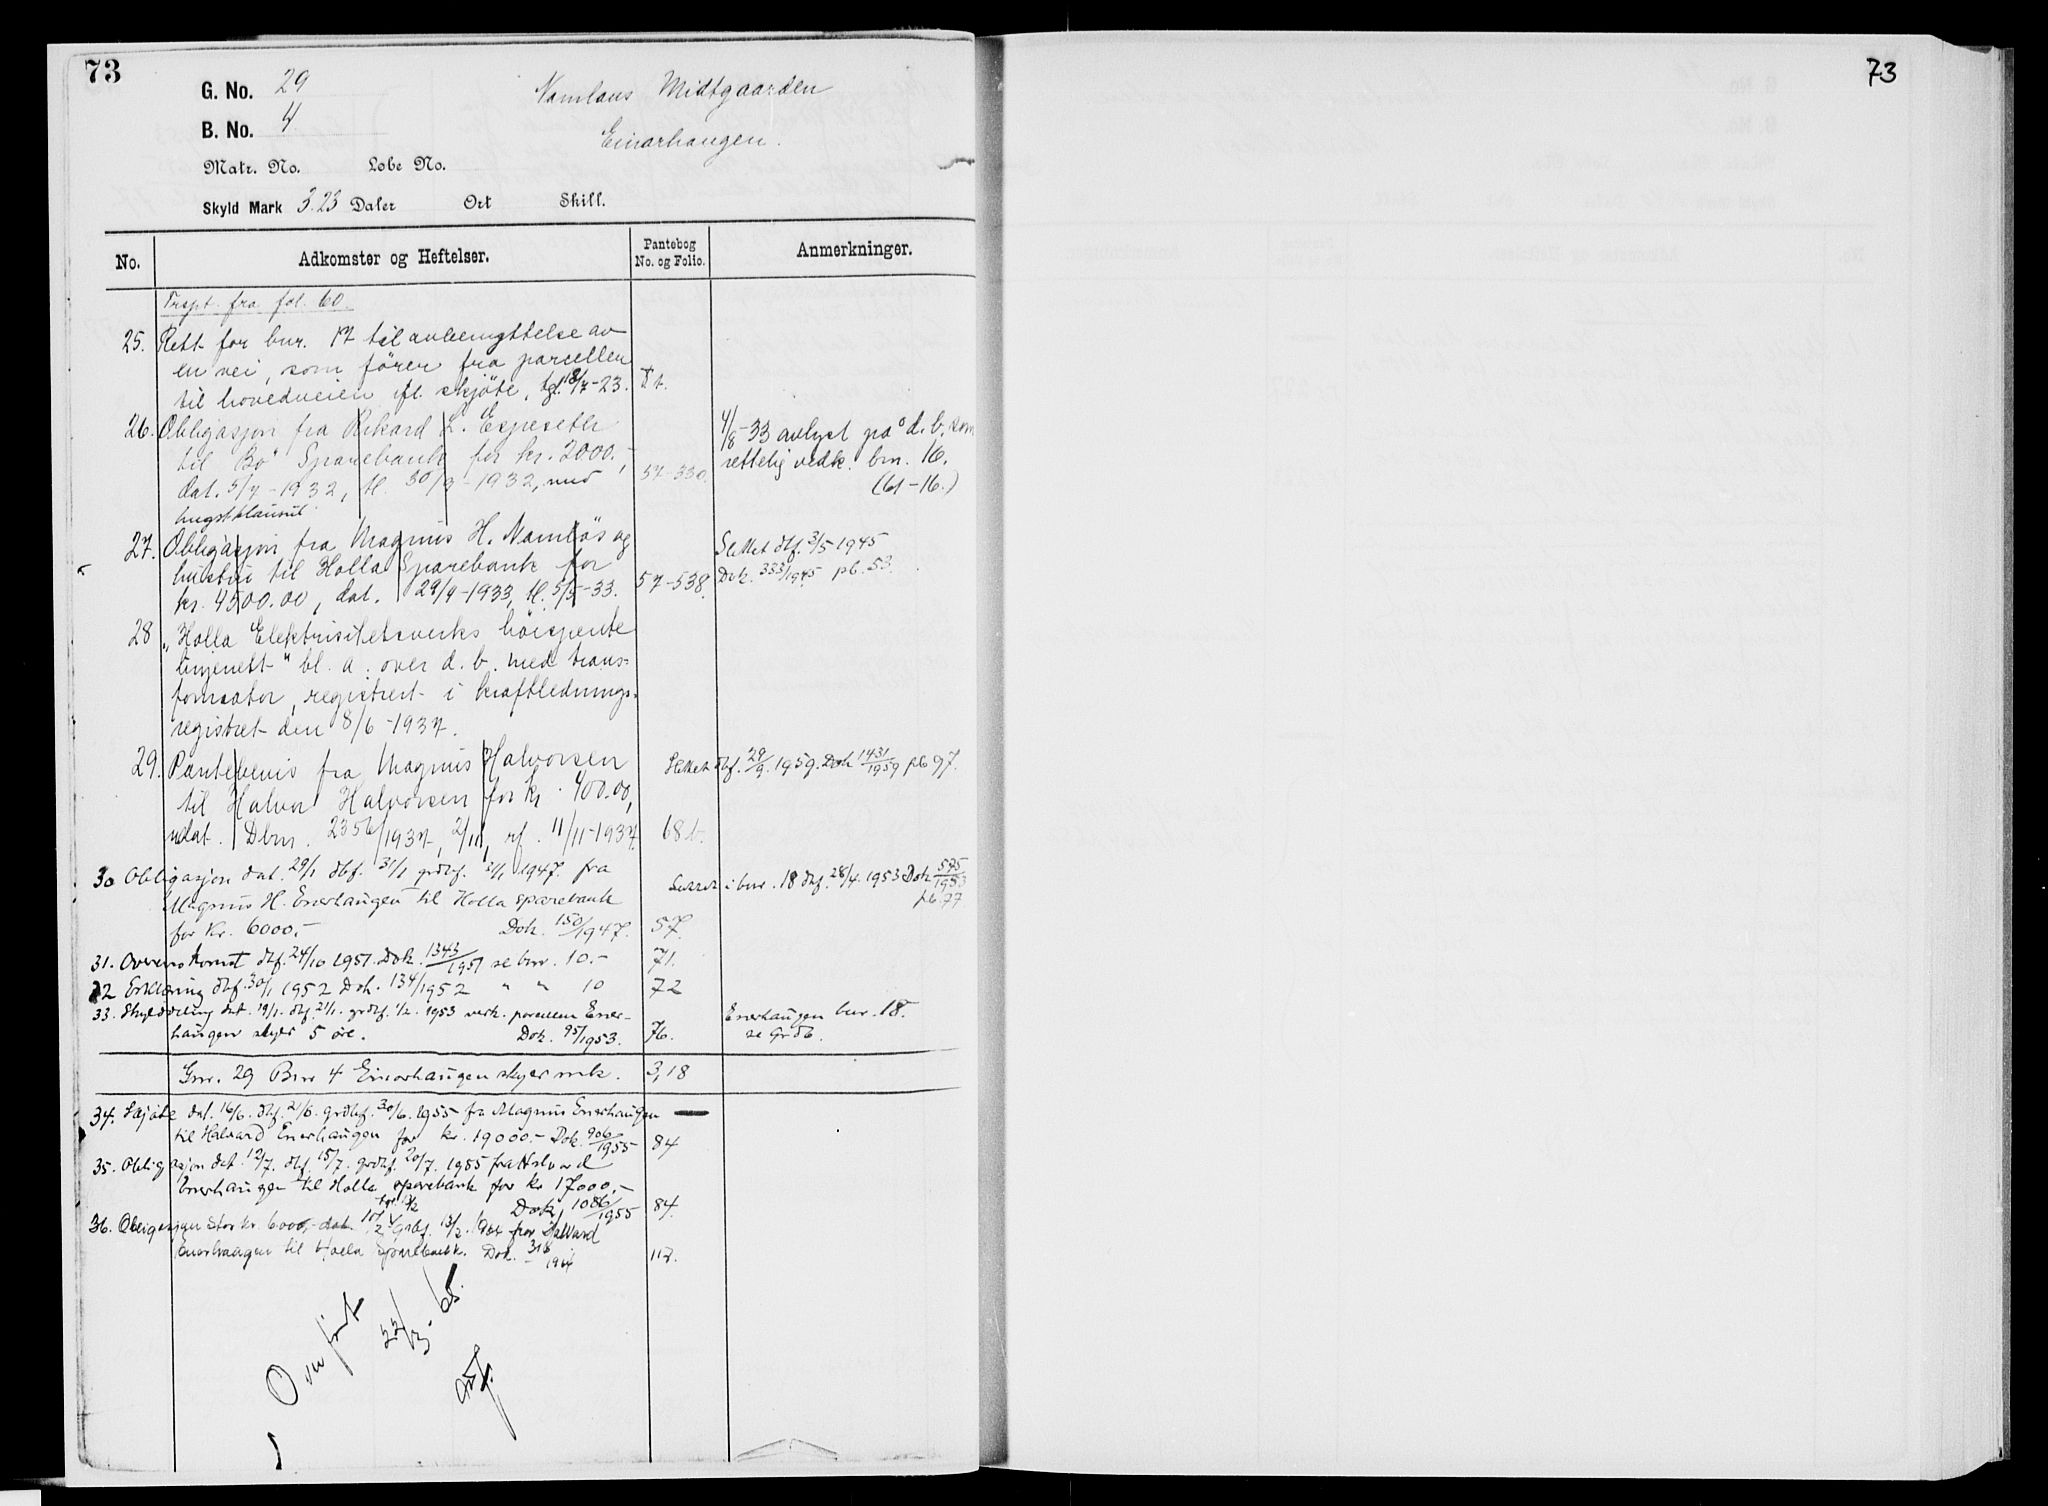 73
G. No. 29
B. No. 4
Namlaus Midtgaarden
Einarhaugen.
Matr. No. Løbe No.
Skyld Mark 3.23 Daler Ort Skill.
No. Adkomster og Heftelser. Pantebog No. og Folio. Anmerkninger.
Trspt. fra fol. 60
25. Rett for bnr. 17 til avbenyttelse av
en vei, som fører fra parcellen
til hovedveien ifl. skjøte, tgl. 18/7-23.
26. Obligasjon fra Rikard L. Espeseth
til "Bø" Sparebank for kr. 2000.,-
dat. 5/7-1932, tl. 30/9-1932, med
hugstklausul. 57-330.
4/8-33 avlyst på d. b. som
rettelig vedk. bnr. 16.
(61-16.)
27. Obligasjon fra Magnus H. Namløs og
hustru til Holla Sparebank for
kr. 4500.00, dat. 29/4-1933, tl. 5/5-33. 57-538.
Slettet dbf. 3/5 1945
Dok. 333/1945 pb. 53.
28 "Holla Elektrisitetsverks høispente
linjenett" bl. a. over d. b. med trans-
formator, registrert i kraftlednings-
registret den 8/6-1937.
29. Pantebevis fra Magnus Halvorsen
til Halvor Halvorsen for kr. 400.00,
udat. Dbnr. 2356/1937, 2/11, rf. 11/11-1937. 68 b.
Slettet dbf. 29/9. 1959. Dok 1431/1959 pb 97.
30 Obligasjon dat. 29/1 dbf. 31/1 grdbf. 31/1 1947. fra
Magnus H. Enerhaugen til Holla sparebank
for kr. 6000.- Dok. 150/1947. 57.
Slettet i bnr. 18 dbf. 28/4. 1953 Dok 575/1953
pb. 77.
31. Overenskomst dbf. 24/10 1951. Dok. 1343/1951 se bnr. 10.- 71.
32 Erklæring dbf. 30/1 1952 Dok. 134/1952 " " 10 72
33. Skylddeling dat. 19/1. dbf. 21/1. grdbf. 1/2. 1953 vedk. parsellen Ener-
haugen skyld 5 øre. Dok. 95/1953. 76.
Enerhaugen bnr. 18.
se grdb.
Gnr. 29 Bnr 4 Einarhaugen skyld mk. 3,18
34. Skjøte dat. 16/6. dbf. 21/6. grdbf. 30/6. 1955 fra Magnus Enerhaugen
til Halvard Enerhaugen for kr. 19000.- Dok. 906/1955 84
35. Obligasjon dat. 12/7. dbf. 15/7. grdbf. 20/7. 1955 fra Halvard
Enerhaugen til Holla sparebank for kr 17000,-
Dok. 1086/1955 84.
36. Obligasjon stor kr. 6000,- dat. 10/2 grdbf. 13/2. 1964 fra Halvard
Enerhaugen til Holla Sparebank. Dok. 1964 112.
Overført 22/3-65.
73